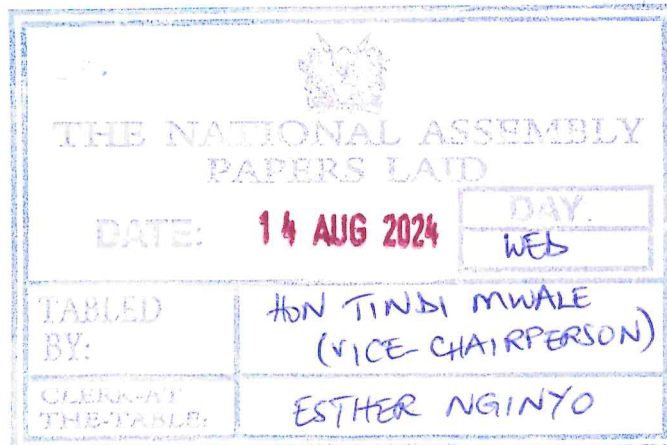 THE NATIONAL ASSEMBLY
PAPERS LAID
DATE: 14 AUG 2024 DAY.
WED
TABLED BY: HON TINDI MWALE (VICE-CHAIRPERSON)
CLERK-AT THE-TABLE: ESTHER NGINYO